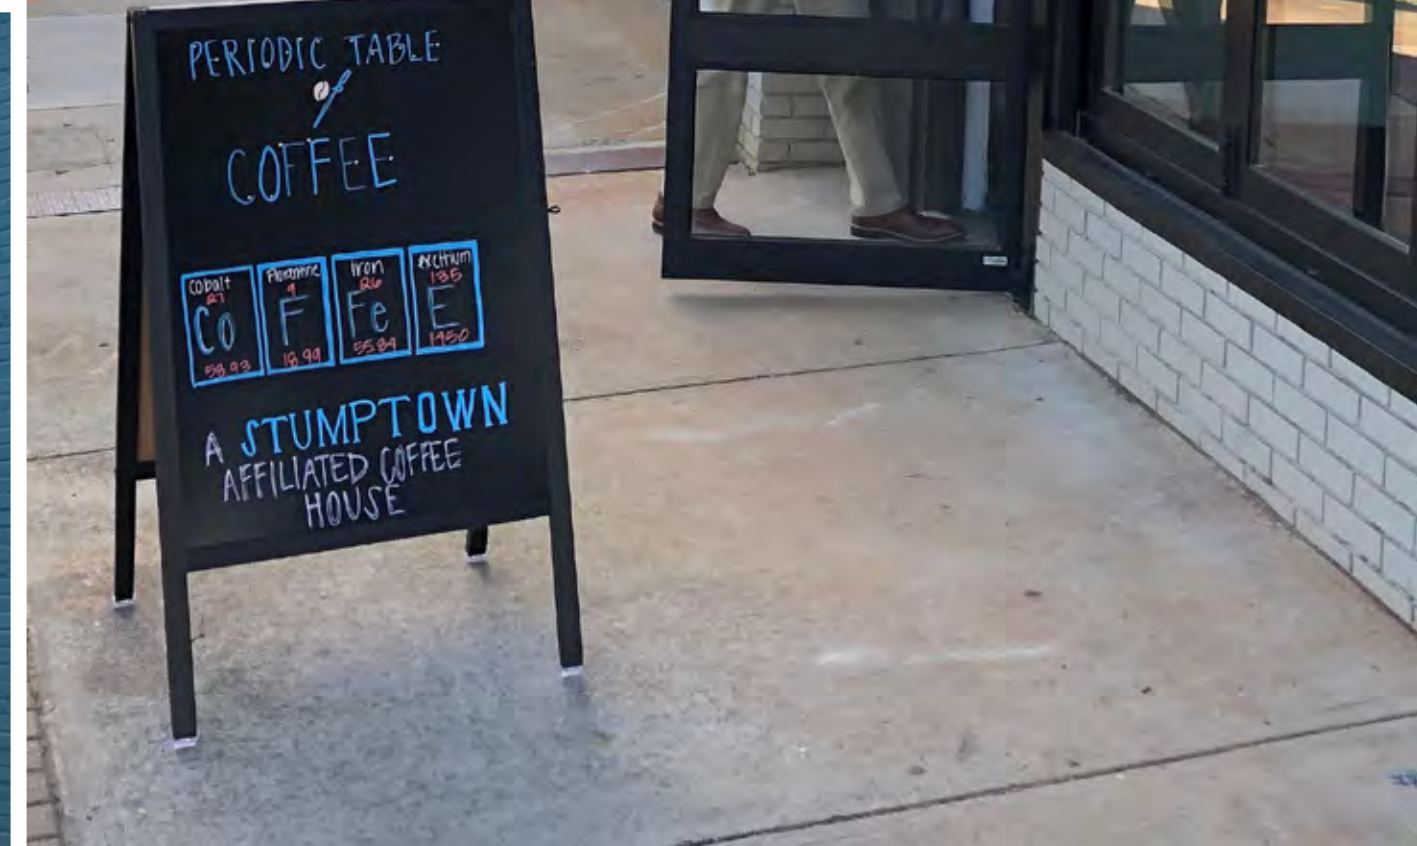 PERIODIC TABLE
COFFEE
Cobalt
27
Co
58.93
9
F
18.99
Iron
26
Fe
55.84
135
E
1450
A STUMPTOWN
AFFILIATED COFFEE
HOUSE